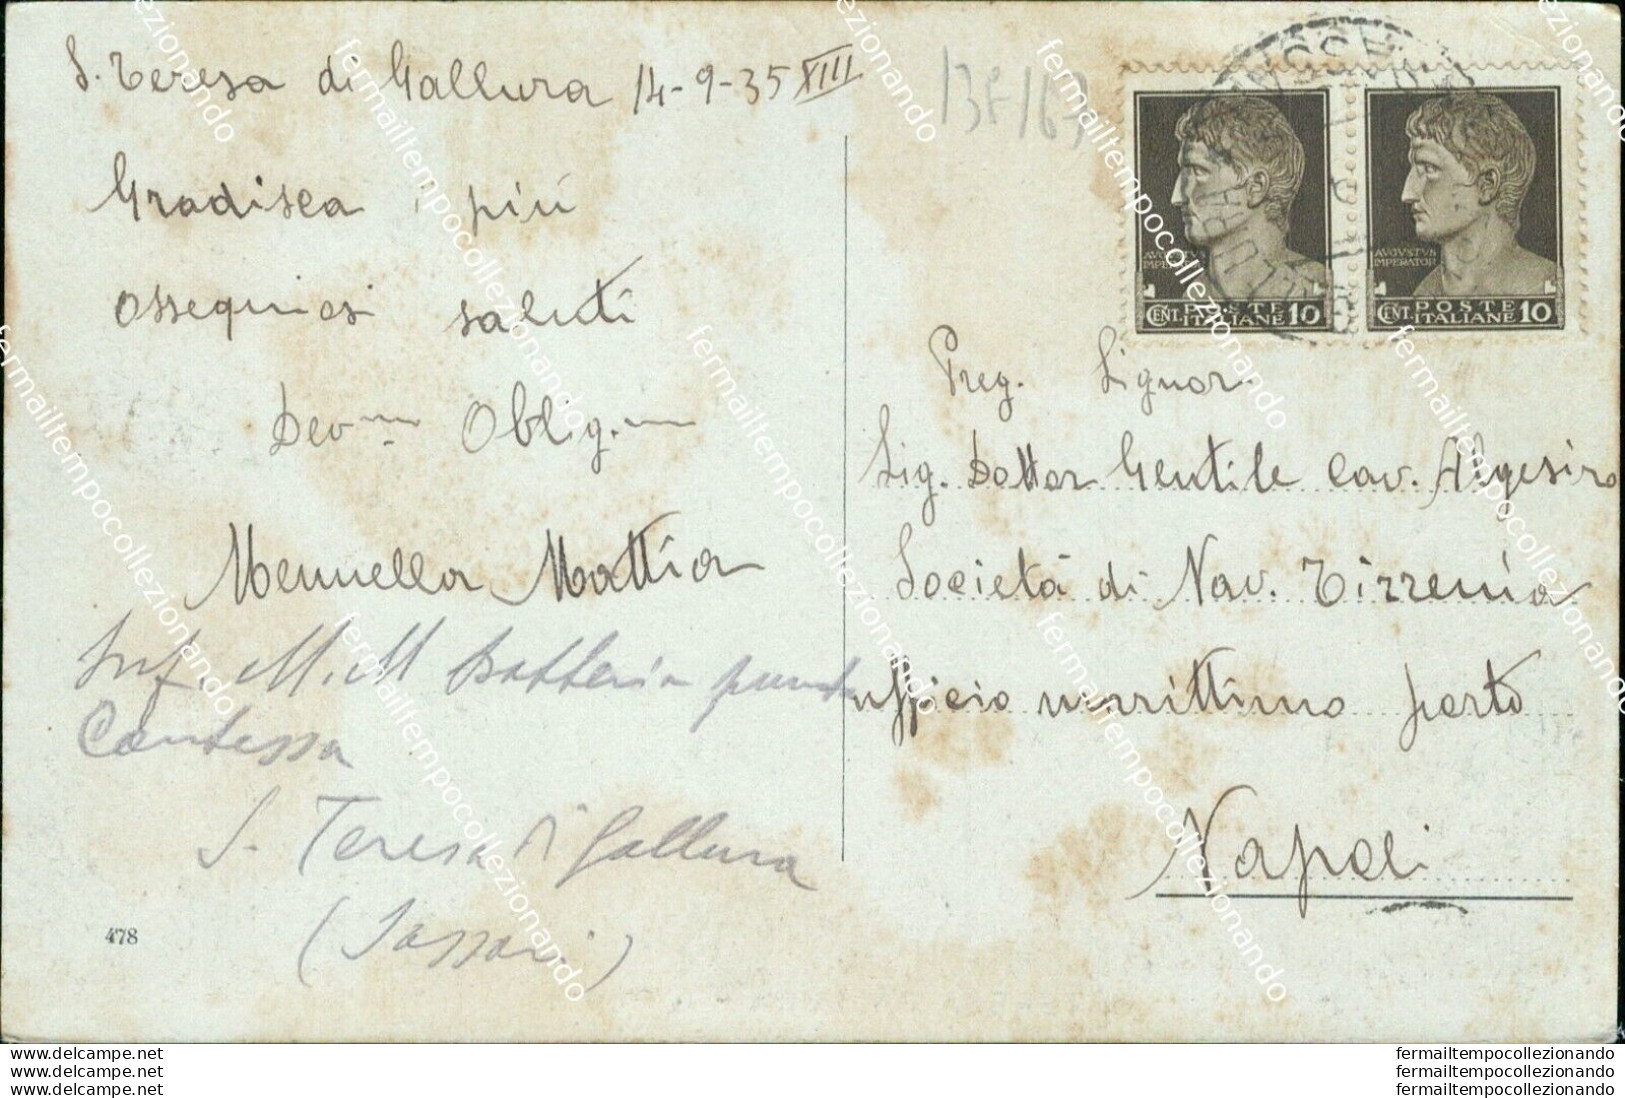 S. Teresa di Gallura 14-9-35 XIII
Gradisca i più
ossequiosi saluti
Dev.mo Oblig.mo
Mennella Mattia
M.M Batteria punta
Contessa
S. Teresa di Gallura
(Sassari)
478
AVGVSTVS
IMPERATOR
CENT. POSTE ITALIANE 10
AVGVSTVS
IMPERATOR
CENT. POSTE ITALIANE 10
Preg. Signor.
Sig. Dottor Gentile Cav. Algesiro
Società di Nav. Tirrenia
ufficio marittimo porto
Napoli
www.delcampe.net
www.delcampe.net
www.delcampe.net
fermailtempocollezionando
fermailtempocollezionando
fermailtempocollezionando